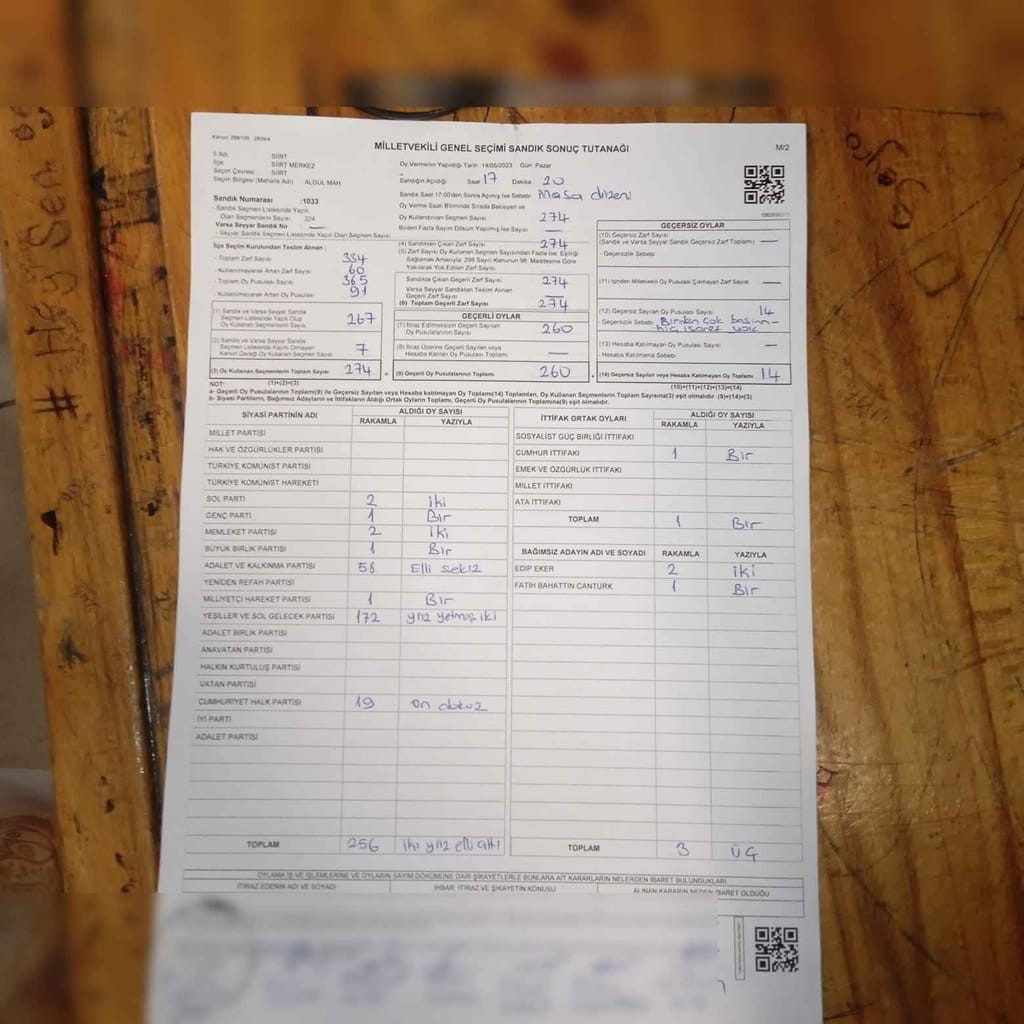 Kanun: 298/105, 2839/4
MİLLETVEKİLİ GENEL SEÇİMİ SANDIK SONUÇ TUTANAĞI
M/2
İl Adı SİİRT
İlçe SİİRT MERKEZ
Seçim Çevresi SİİRT
Seçim Bölgesi (Mahalle Adı) ALGÜL MAH
Sandık Numarası :1033
- Sandık Seçmen Listesinde Yazılı
Olan Seçmenlerin Sayısı 324
Varsa Seyyar Sandık No —
- Seyyar Sandık Seçmen Listesinde Yazılı Olan Seçmen Sayısı
İlçe Seçim Kurulundan Teslim Alınan :
- Toplam Zarf Sayısı 334
- Kullanılmayarak Artan Zarf Sayısı 60
- Toplam Oy Pusulası 365
- Kullanılmayarak Artan Oy Pusulası 91
(1) Sandık ve Varsa Seyyar Sandık
Seçmen Listesinde Yazılı Olup
Oy Kullanan Seçmenlerin Sayısı 267
(2) Sandık ve Varsa Seyyar Sandık
Seçmen Listesinde Kayıtlı Olmayan
Kanun Gereği Oy Kullanan Seçmen Sayısı 7
(3) Oy Kullanan Seçmenlerin Toplam Sayısı 274
(1)+(2)=(3)
Oy Vermenin Yapıldığı Tarih :14/05/2023 Gün Pazar
Sandığın Açıldığı Saat 17 Dakika 20
Sandık Saat 17:00'den Sonra Açılmış İse Sebebi Masa düzeni
Oy Verme Saati Bitiminde Sırada Bekleyen ve
Oy Kullandırılan Seçmen Sayısı 274
Birden Fazla Sayım Döküm Yapılmış İse Sayısı —
(4) Sandıktan Çıkan Zarf Sayısı 274
(5) Zarf Sayısı Oy Kullanan Seçmen Sayısından Fazla İse; Eşitliği
Sağlamak Amacıyla; 298 Sayılı Kanunun 98. Maddesine Göre
Yakılarak Yok Edilen Zarf Sayısı
Sandıkta Çıkan Geçerli Zarf Sayısı 274
Varsa Seyyar Sandıktan Teslim Alınan
Geçerli Zarf Sayısı —
(6) Toplam Geçerli Zarf Sayısı 274
GEÇERLİ OYLAR
(7) İtiraz Edilmeksizin Geçerli Sayılan
Oy Pusulalarının Sayısı 260
(8) İtiraz Üzerine Geçerli Sayılan veya
Hesaba Katılan Oy Pusulası Toplamı —
(9) Geçerli Oy Pusulalarının Toplamı 260
GEÇERSİZ OYLAR
(10) Geçersiz Zarf Sayısı
(Sandık ve Varsa Seyyar Sandık Geçersiz Zarf Toplamı) —
- Geçersizlik Sebebi
(11) İçinden Milletvekili Oy Pusulası Çıkmayan Zarf Sayısı —
(12) Geçersiz Sayılan Oy Pusulası Sayısı 14
- Geçersizlik Sebebi Birden çok basım-
hiç işaret yok
(13) Hesaba Katılmayan Oy Pusulası Sayısı —
- Hesaba Katılmama Sebebi
(14) Geçersiz Sayılan veya Hesaba Katılmayan Oy Toplamı 14
(10)+(11)+(12)+(13)=(14)
NOT:
a- Geçerli Oy Pusulalarının Toplamı(9) ile Geçersiz Sayılan veya Hesaba katılmayan Oy Toplamı(14) Toplamları, Oy Kullanan Seçmenlerin Toplam Sayısına(3) eşit olmalıdır. (9)+(14)=(3)
b- Siyasi Partilerin, Bağımsız Adayların ve İttifakların Aldığı Ortak Oyların Toplamı, Geçerli Oy Pusulalarının Toplamına(9) eşit olmalıdır.
SİYASİ PARTİNİN ADI ALDIĞI OY SAYISI
RAKAMLA YAZIYLA
MİLLET PARTİSİ
HAK VE ÖZGÜRLÜKLER PARTİSİ
TÜRKİYE KOMÜNİST PARTİSİ
TÜRKİYE KOMÜNİST HAREKETİ
SOL PARTİ 2 iki
GENÇ PARTİ 1 Bir
MEMLEKET PARTİSİ 2 iki
BÜYÜK BİRLİK PARTİSİ 1 Bir
ADALET VE KALKINMA PARTİSİ 58 Elli sekiz
YENİDEN REFAH PARTİSİ
MİLLİYETÇİ HAREKET PARTİSİ 1 Bir
YEŞİLLER VE SOL GELECEK PARTİSİ 172 yüz yetmiş iki
ADALET BİRLİK PARTİSİ
ANAVATAN PARTİSİ
HALKIN KURTULUŞ PARTİSİ
VATAN PARTİSİ
CUMHURİYET HALK PARTİSİ 19 on dokuz
İYİ PARTİ
ADALET PARTİSİ
TOPLAM 256 iki yüz elli altı
İTTİFAK ORTAK OYLARI ALDIĞI OY SAYISI
RAKAMLA YAZIYLA
SOSYALİST GÜÇ BİRLİĞİ İTTİFAKI
CUMHUR İTTİFAKI 1 Bir
EMEK VE ÖZGÜRLÜK İTTİFAKI
MİLLET İTTİFAKI
ATA İTTİFAKI
TOPLAM 1 Bir
BAĞIMSIZ ADAYIN ADI VE SOYADI RAKAMLA YAZIYLA
EDİP EKER 2 iki
FATİH BAHATTİN CANTÜRK 1 Bir
TOPLAM 3 ÜÇ
OYLAMA İŞ VE İŞLEMLERİNE VE OYLARIN SAYIM DÖKÜMÜNE DAİR ŞİKAYETLERLE BUNLARA AİT KARARLARIN NELERDEN İBARET BULUNDUKLARI
İTİRAZ EDENİN ADI VE SOYADI İHBAR, İTİRAZ VE ŞİKAYETİN KONUSU ALINAN KARARIN NEDEN İBARET OLDUĞU